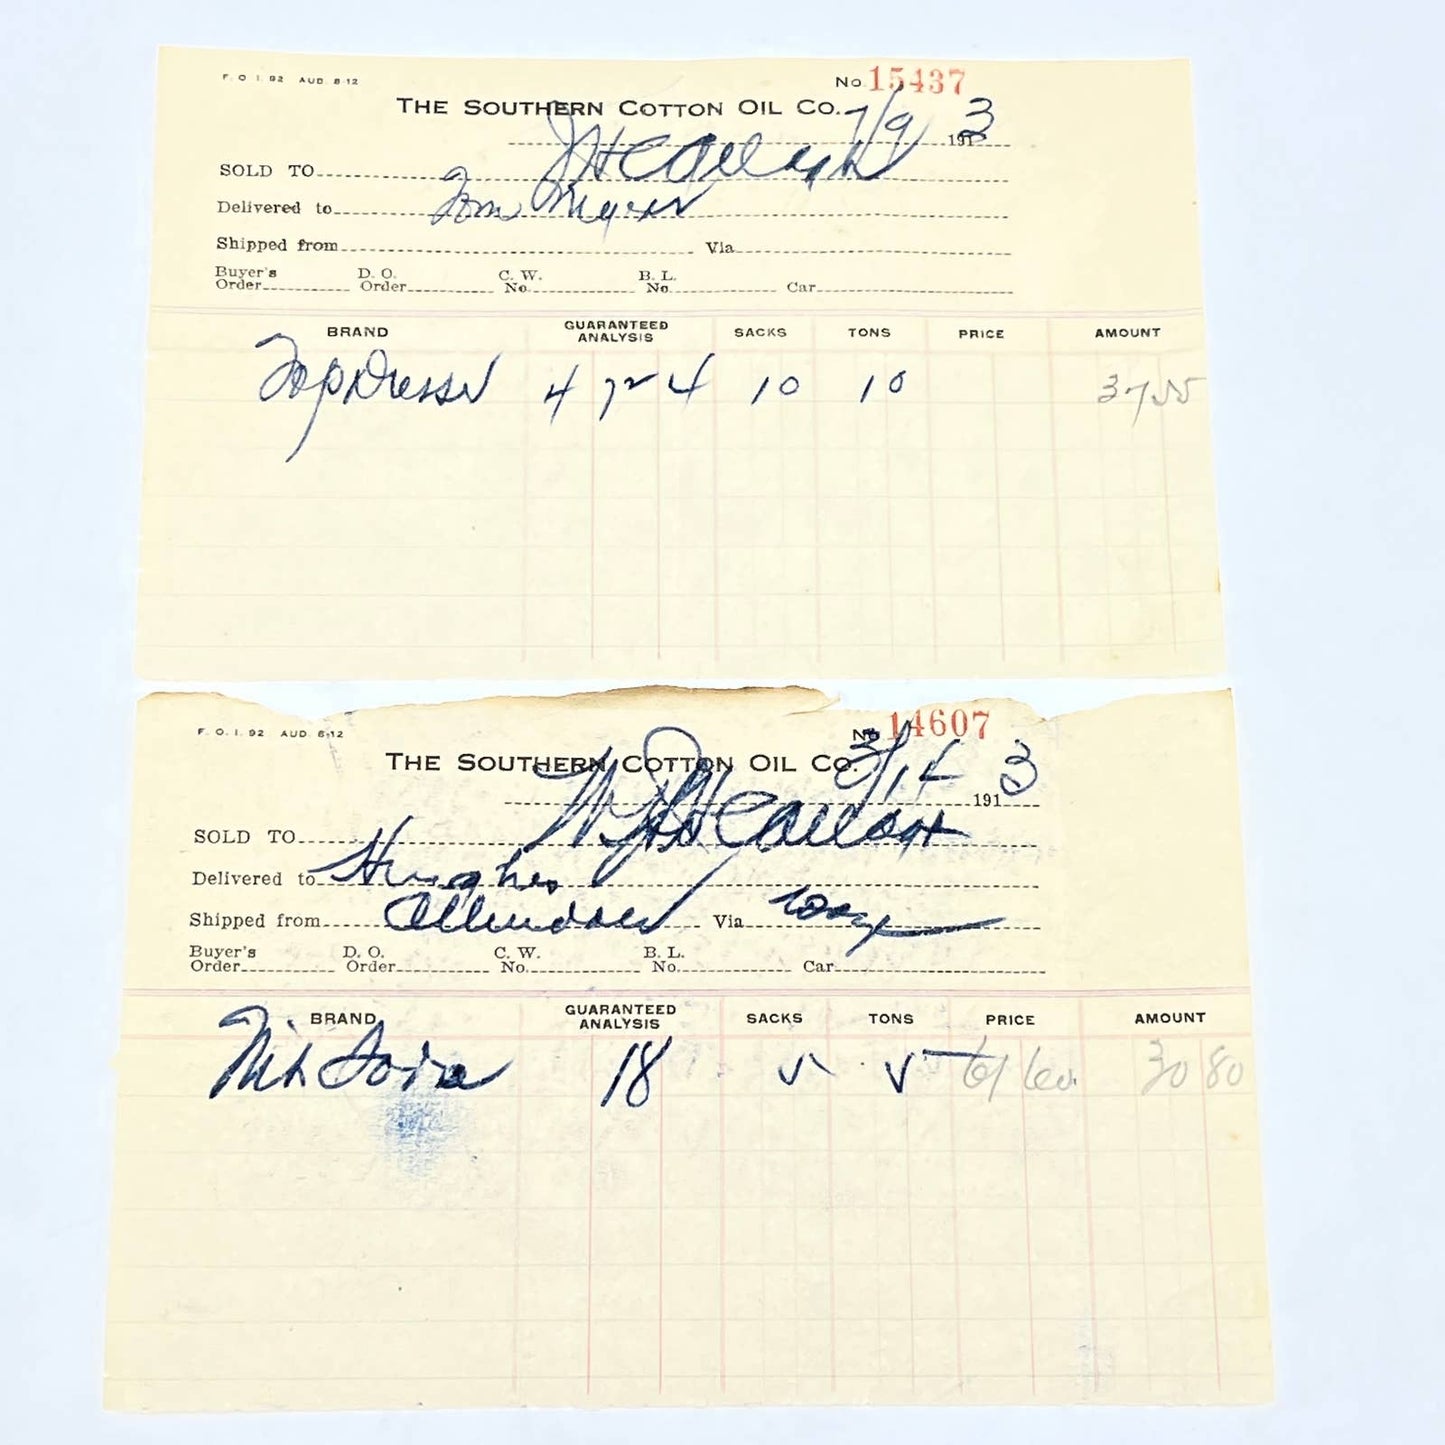 F. O. I. 92 AUD. 8-12
No 15437
THE SOUTHERN COTTON OIL CO. 7/9 1913
SOLD TO
Delivered to Tom Myers
Shipped from Via
Buyer's Order D. O. Order C. W. No. B. L. No. Car
BRAND GUARANTEED ANALYSIS SACKS TONS PRICE AMOUNT
TopDresser 4 7½ 4 10 10 37 55
F. O. I. 92 AUD 8-12
No 14607
THE SOUTHERN COTTON OIL CO. 3/14 1913
SOLD TO
Delivered to Hughes
Shipped from Allendale Via
Buyer's Order D. O. Order C. W. No. B. L. No. Car
BRAND GUARANTEED ANALYSIS SACKS TONS PRICE AMOUNT
Nit Soda 18 61 60 30 80